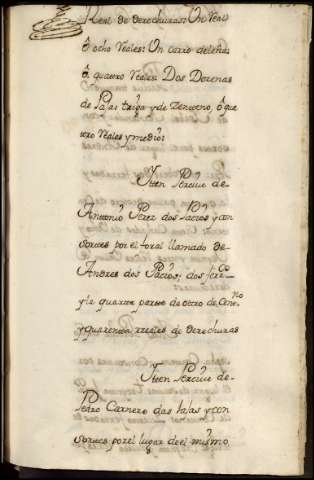 Real de derechuras: Un Real
ô ocho Reales: Un carro de leña
ô quatro Reales: Dos Docenas
de Paja: triga y de Zenteno, ô que
tro Reales y medio:
Iten Percive de
Antonio Perez dos Pacios y con
sortes por el foral llamado de
Andres dos Pacios; dos fer.
y la quarta parte de otro de Cente.no
y quarenta rreales de derechuras
Iten Percive de
Pedro Carnero das Lajas y con
sortes por el lugar de el mismo